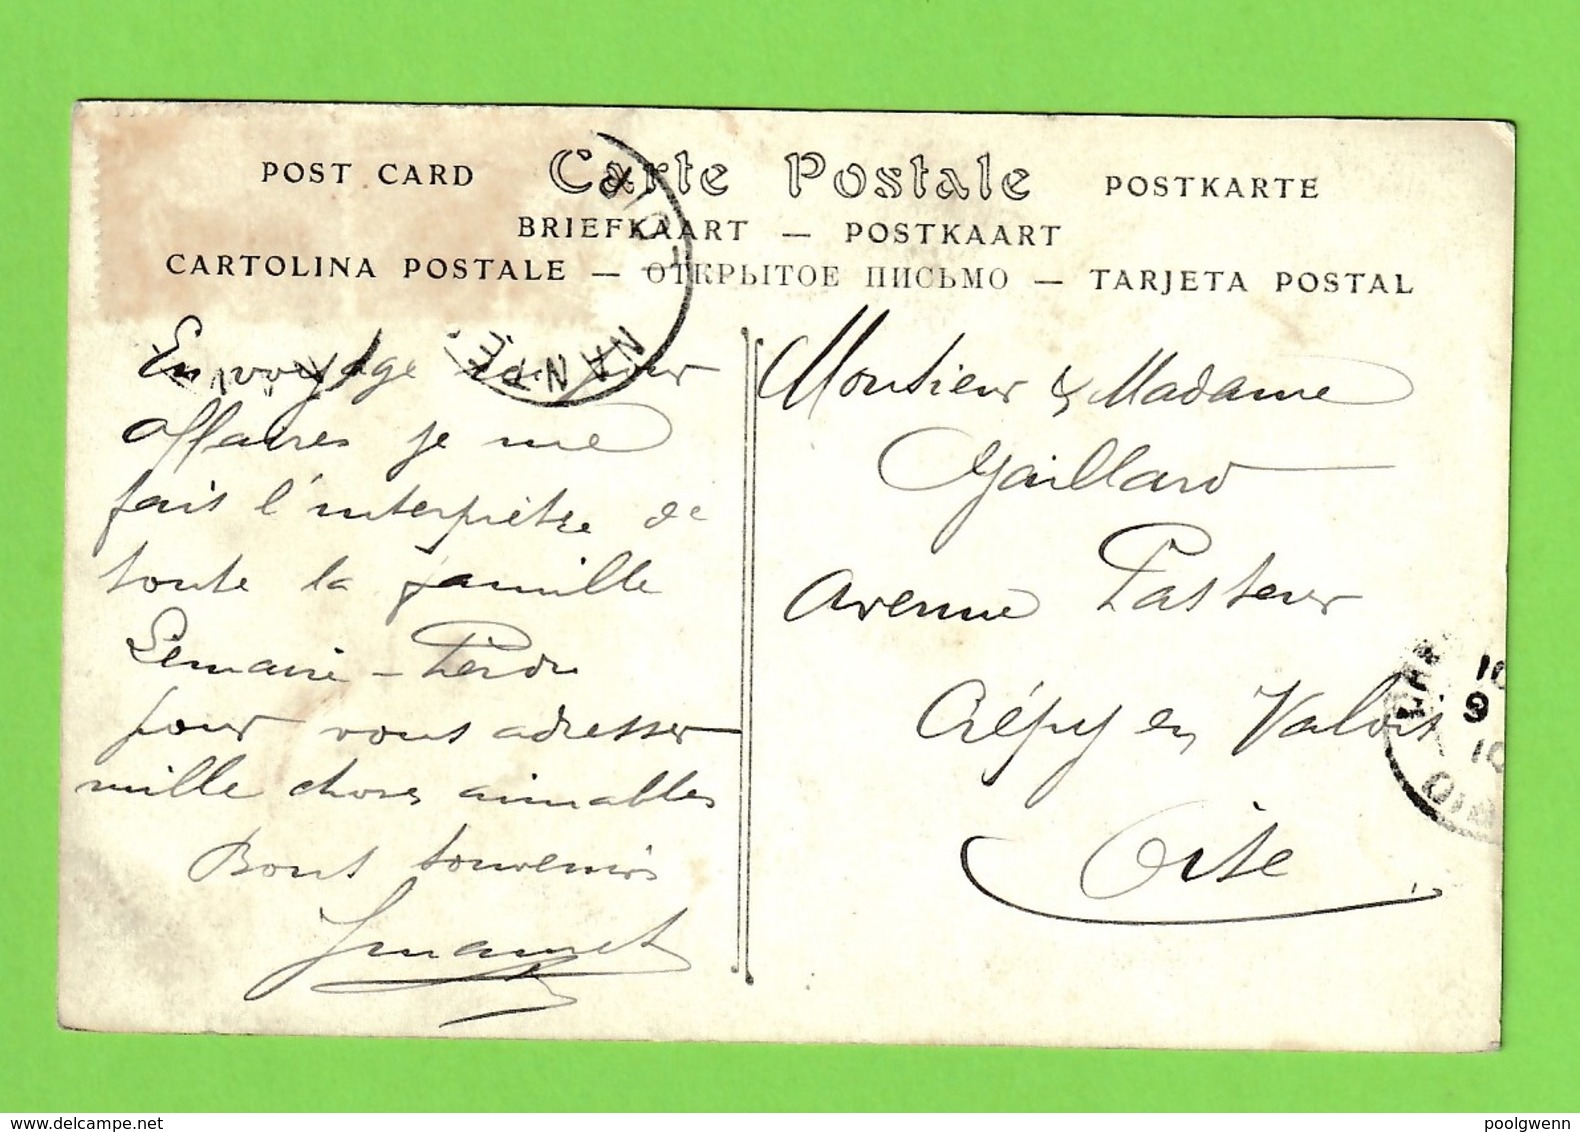 POST CARD Carte Postale POSTKARTE
BRIEFKAART — POSTKAART
CARTOLINA POSTALE — ОТКРЫТОЕ ПИСЬМО — TARJETA POSTAL
En voyage pour
affaires je me
fais l'interprète de
toute la famille
Lemaire - Perdr
pour vous adresser
mille choses aimables
Bons souvenirs
Monsieur & Madame
Gaillard
Avenue Pasteur
Crépy en Valois
Oise
NANTE
10
9
10
poolgwenn